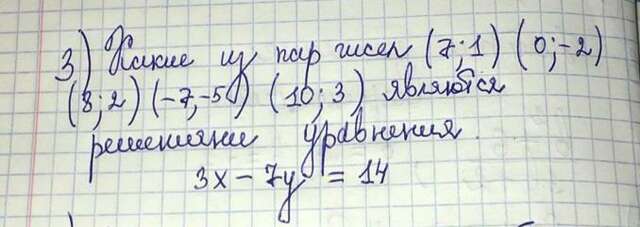 3) Какие из пар чисел (7;1) (0;-2)
(8;2) (-7;-5) (10;3) являются
решениями уравнения.
3x - 7y = 14